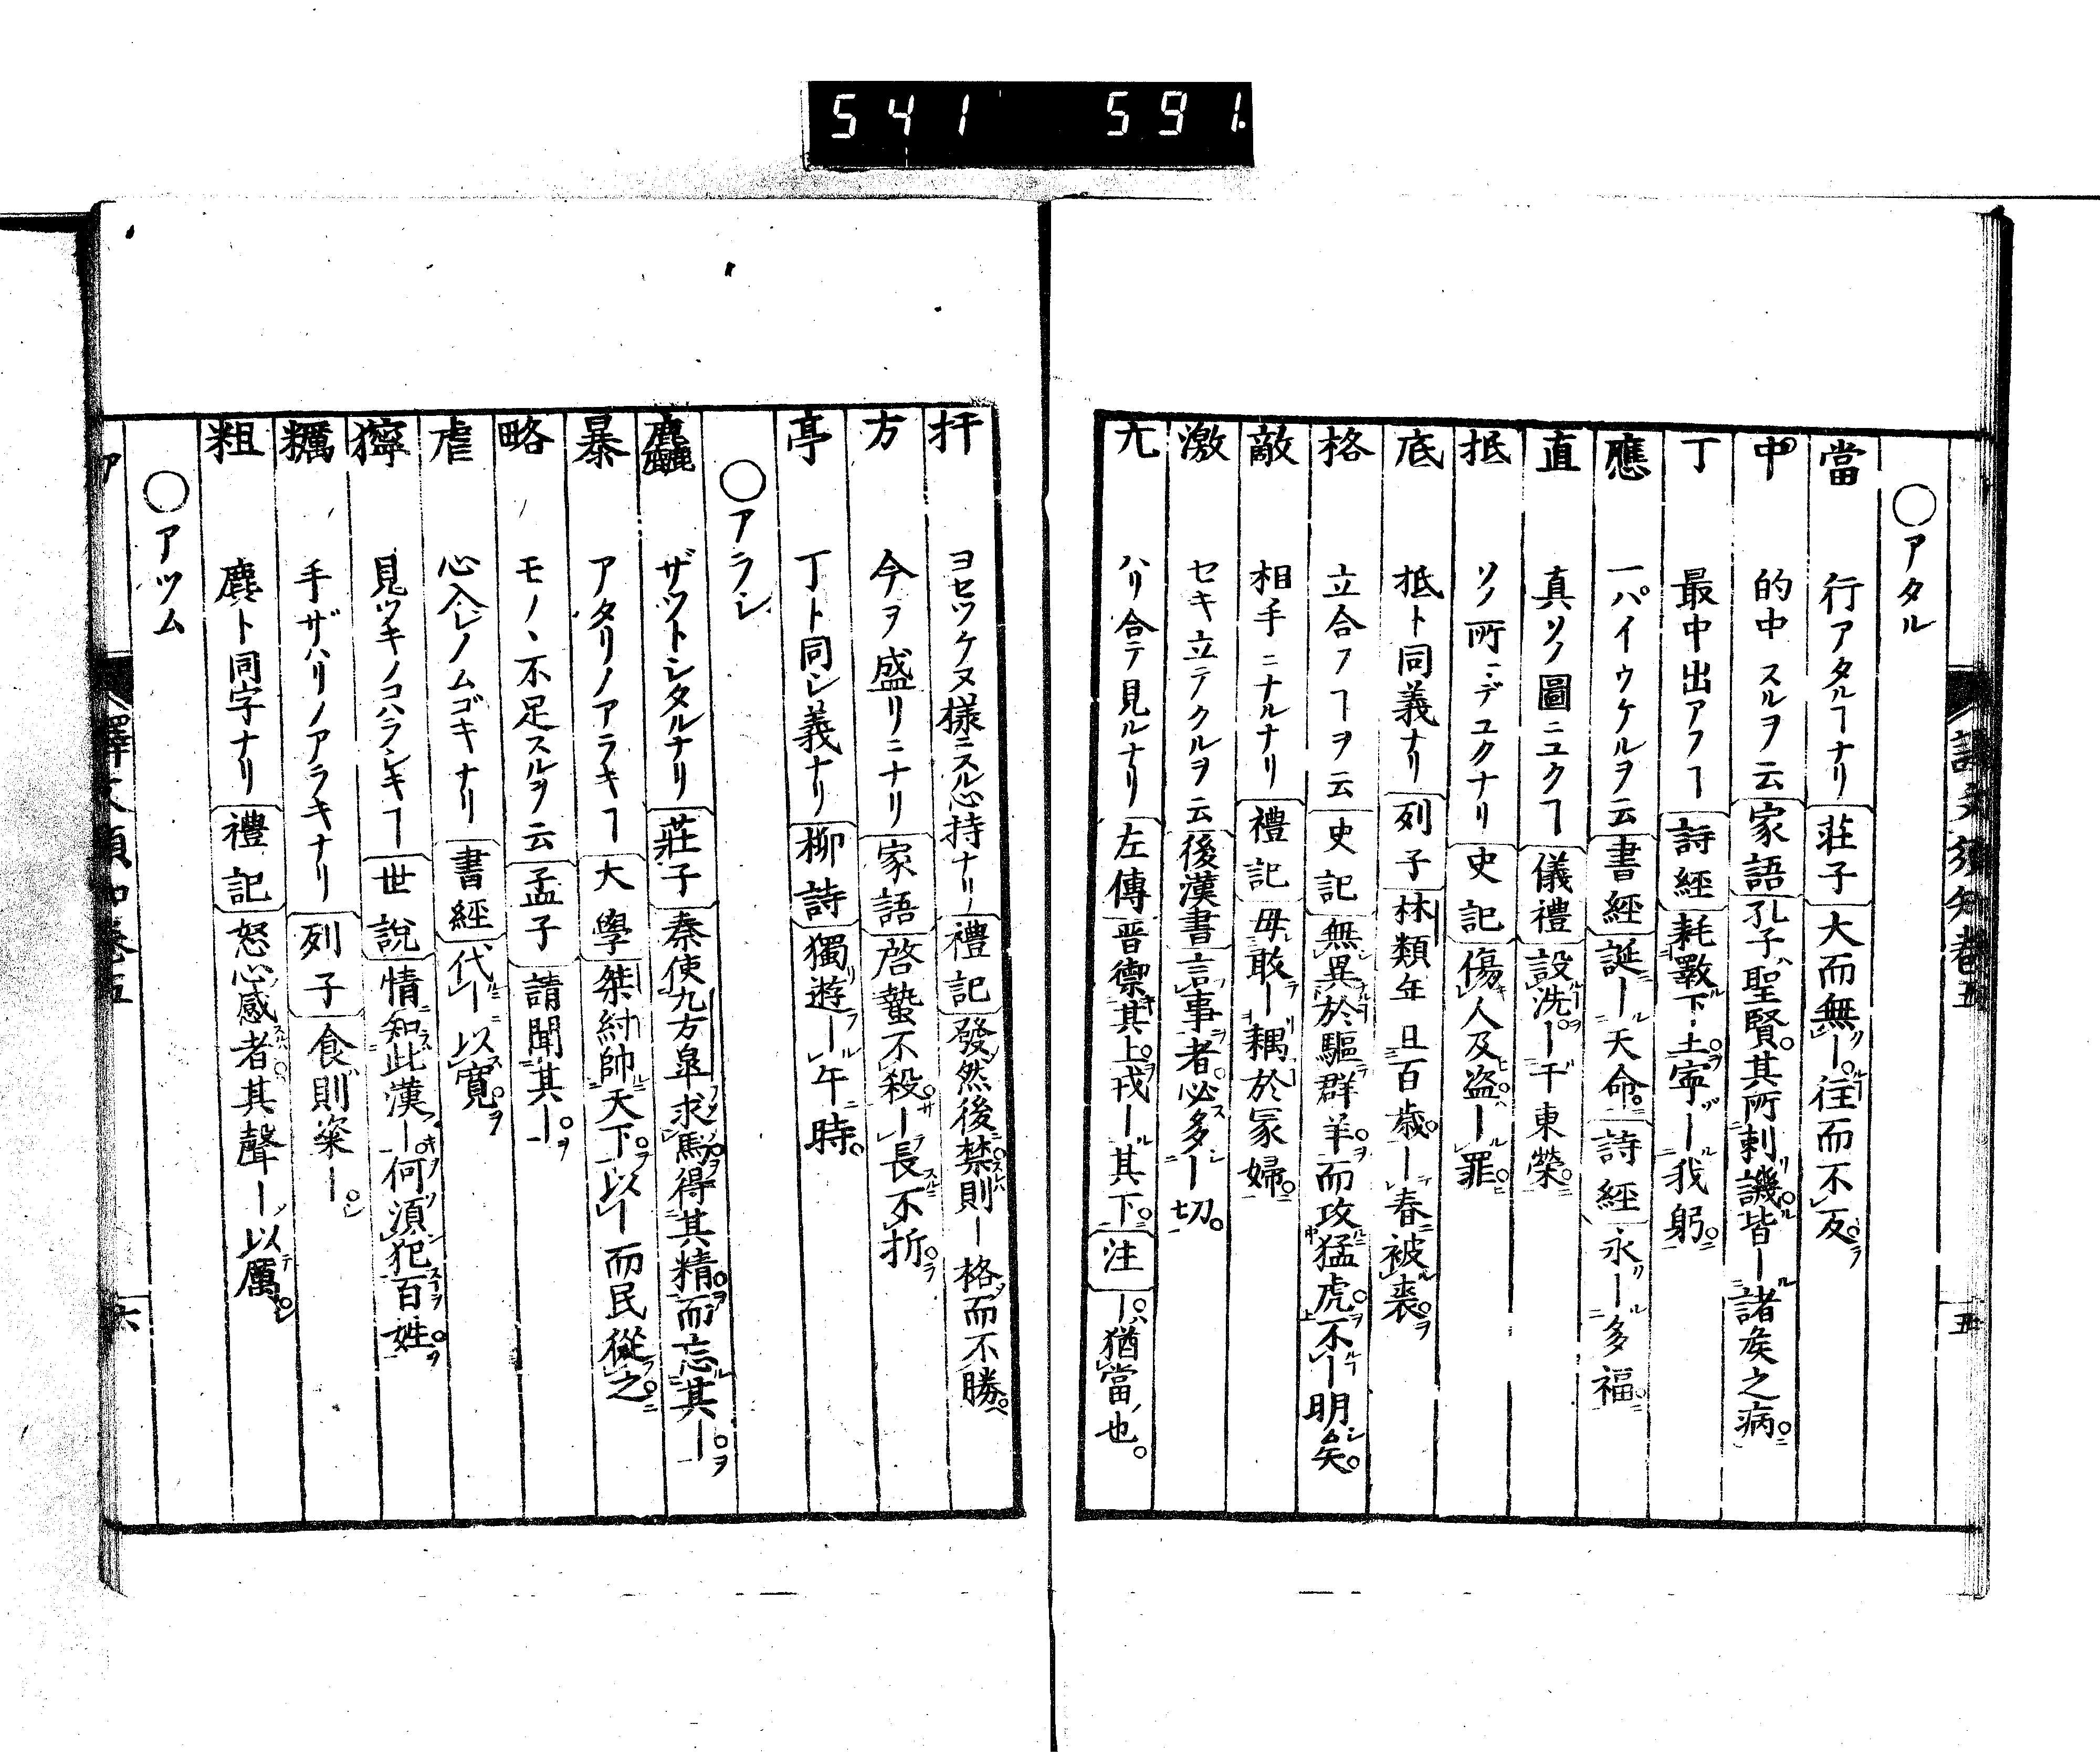 541 591
○アタル
當 行アタルヿナリ 莊子 大而無ー往而不反
中 的中スルヲ云 家語 孔子聖賢其所刺譏皆ー諸矦之病
丁 最中出アフヿ 詩經 耗斁下土寧ー我躬
應 一パイウケルヲ云 書經 誕ー天命 詩經 永ー多福
直 真ソノ圖ニユクヿ 儀禮 設洗ー于東榮
抵 ソノ所ニデユクナリ 史記 傷人及盗ー罪
底 抵ト同義ナリ 列子 林類年且百歳ー春被裘
格 立合フヿヲ云 史記 無異於驅群羊而攻猛虎不ー明矣
敵 相手ニナルナリ 禮記 毋敢ー耦於冢婦
激 セキ立テクルヲ云 後漢書 言事者必多ー切
亢 ハリ合テ見ルナリ 左傳 晋禦其上戎ー其下 注 ー猶當也
五
扞 ヨセツケヌ様ニスル心持ナリ 禮記 發然後禁則ー格而不勝
方 今ヲ盛リニナリ 家語 啓蟄不殺ー長不折
亭 丁ト同シ義ナリ 柳詩 獨遊ー午時
○アラシ
麤 ザツトシタルナリ 莊子 秦使九方皐求馬得其精而忘其ー
暴 アタリノアラキヿ 大學 桀紂帥天下以ー而民從之
略 モノヽ不足スルヲ云 孟子 請聞其ー
虐 心入レノムゴキナリ 書經 代ー以寛
獰 見ツキノコハラシキヿ 世説 情知此漢ー何須犯百姓
糲 手ザハリノアラキナリ 列子 食則粢ー
粗 麤ト同字ナリ 禮記 怒心感者其聲ー以厲
○アツム
六